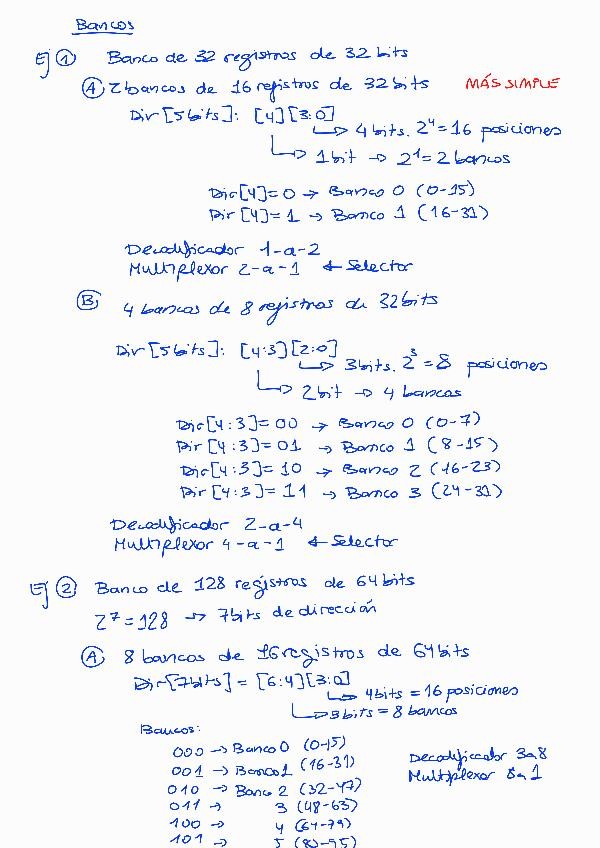 Bancos
Ej ① Banco de 32 registros de 32 bits
Ⓐ 2 bancos de 16 registros de 32 bits MÁS SIMPLE
Dir [5 bits]: [4][3:0]
↳ 4 bits. 2⁴ = 16 posiciones
↳ 1 bit → 2¹ = 2 bancos
Dir[4] = 0 → Banco 0 (0-15)
Dir [4] = 1 → Banco 1 (16-31)
Decodificador 1-a-2
Multiplexor 2-a-1 ← Selector
Ⓑ 4 bancos de 8 registros de 32 bits
Dir [5 bits]: [4:3][2:0]
↳ 3 bits. 2³ = 8 posiciones
↳ 2 bit → 4 bancos
Dir[4:3] = 00 → Banco 0 (0-7)
Dir [4:3] = 01 → Banco 1 (8-15)
Dir[4:3] = 10 → Banco 2 (16-23)
Dir [4:3] = 11 → Banco 3 (24-31)
Decodificador 2-a-4
Multiplexor 4-a-1 ← Selector
Ej ② Banco de 128 registros de 64 bits
2⁷ = 128 → 7 bits de dirección
Ⓐ 8 bancos de 16 registros de 64 bits
Dir[7 bits] = [6:4][3:0]
↳ 4 bits = 16 posiciones
↳ 3 bits = 8 bancos
Bancos:
000 → Banco 0 (0-15)
001 → Banco 1 (16-31)
010 → Banco 2 (32-47)
011 → 3 (48-63)
100 → 4 (64-79)
101 → 5 (80-95)
Decodificador 3 a 8
Multiplexor 8 a 1